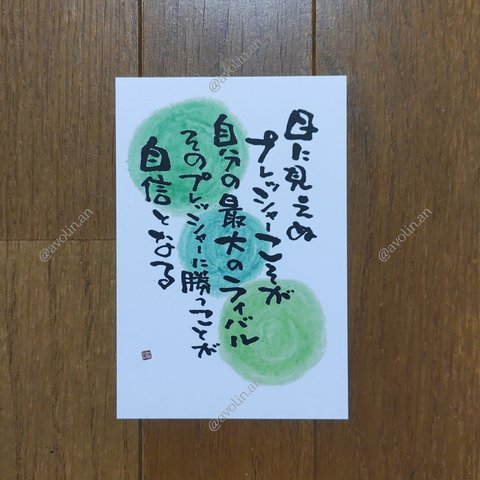 目に見えぬ
プレッシャーこそが
自分の最大のライバル
そのプレッシャーに勝つことが
自信となる
@avolin.an
@avolin.an
@avolin.an
@avolin.an
@avolin.an